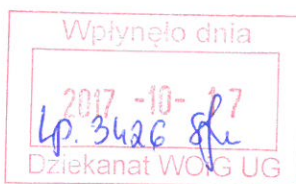 Wpłynęło dnia
2017 -10- 17
Lp. 3426
Dziekanat WOiG UG